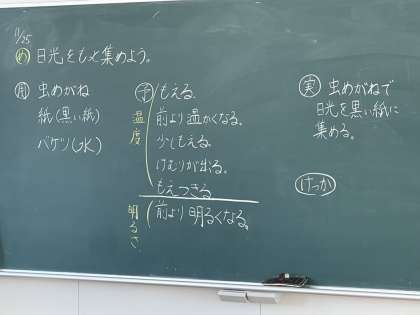 11/25
め 日光をもっと集めよう。
用 虫めがね
紙(黒い紙)
バケツ(水)
予 もえる。
温度
前より温かくなる。
少しもえる。
けむりが出る。
もえつきる
明るさ
前より明るくなる。
実 虫めがねで
日光を黒い紙に
集める。
けっか